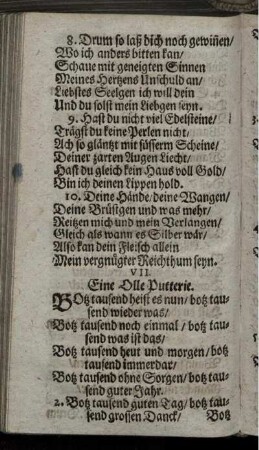 8. Drum so laß dich noch gewiñen/
Wo ich anders bitten kan/
Schaue mit geneigten Sinnen
Meines Hertzens Unschuld an/
Liebstes Seelgen ich will dein
Und du solst mein Liebgen seyn.
9. Hast du nicht viel Edelsteine/
Trägst du keine Perlen nicht/
Ach so gläntzt mit süsserm Scheine/
Deiner zarten Augen Liecht/
Hast du gleich kein Haus voll Gold/
Bin ich deinen Lippen hold.
10. Deine Hände/ deine Wangen/
Deine Brüstgen und was mehr/
Reitzen mich und mein Verlangen/
Gleich als wann es Silber wär/
Also kan dein Fleisch allein
Mein vergnügter Reichthum seyn.
VII.
Eine Olle Putterie.
BOtz tausend heist es nun/ botz tau-
send wieder was/
Botz tausend noch einmal/ botz tau-
send was ist das/
Botz tausend heut und morgen/ botz
tausend immerdar/
Botz tausend ohne Sorgen/ botz tau-
send guter Jahr.
2. Botz tausend guten Tag/ botz tau-
send grossen Danck/ Botz